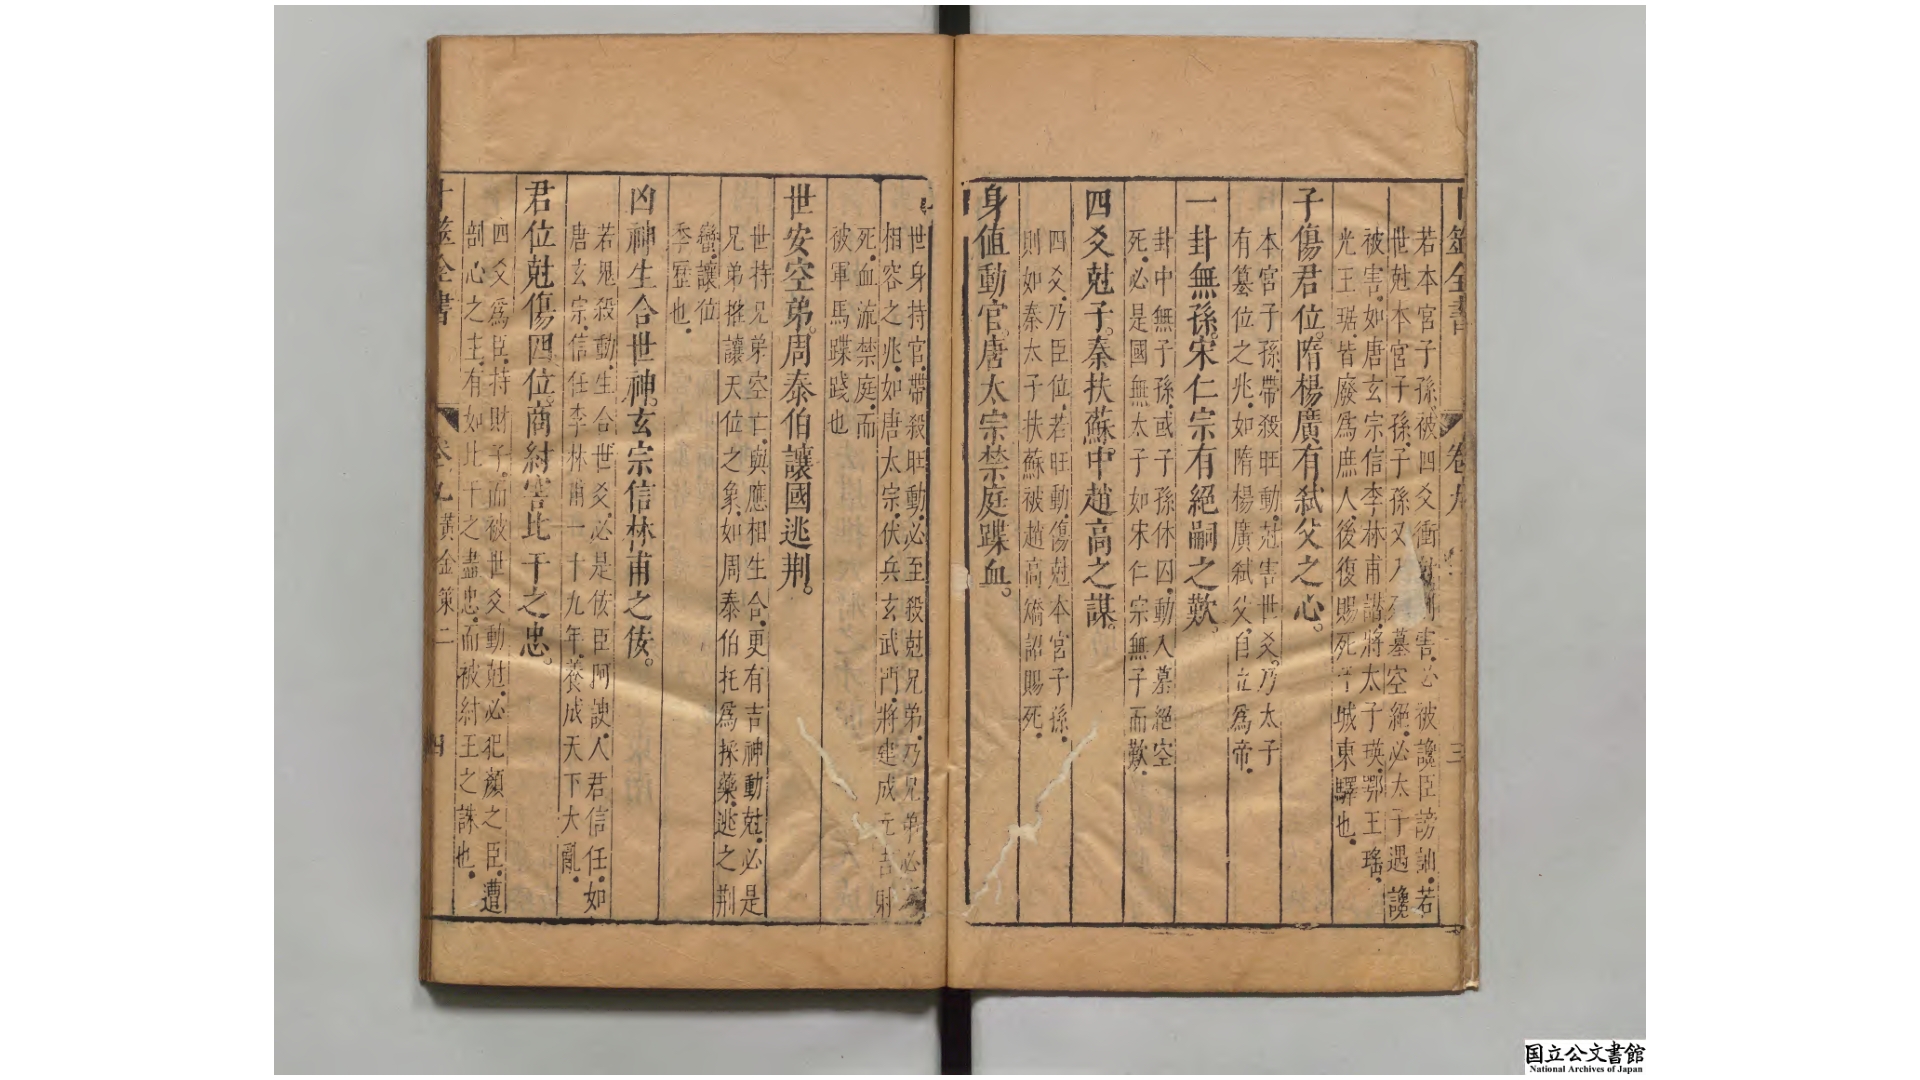 卜筮全書 卷九 三
若本宮子孫被四爻衝尅刑害必被讒臣謗訕若
世尅本宮子孫子孫又入死墓空絕必太子遇讒
被害如唐玄宗信李林甫譖將太子瑛鄂王瑤
光王琚皆廢爲庶人後復賜死 城東驛也
子傷君位隋楊廣有弑父之心
本宮子孫帶殺旺動尅害世爻乃太子
有簒位之兆如隋楊廣弑父自立爲帝
一卦無孫宋仁宗有絕嗣之歎
卦中無子孫或子孫休囚動入墓絕空
死必是國無太子如宋仁宗無子而歎
四爻尅子秦扶蘇中趙高之謀
四爻乃臣位若旺動傷尅本宮子孫
則如秦太子扶蘇被趙高矯詔賜死
身值動官唐太宗禁庭蹀血
世身持官帶殺旺動必至殺尅兄弟乃兄弟必
相容之兆如唐太宗伏兵玄武門將建成元吉射
死血流禁庭而
被軍馬蹀踐也
世安空弟周泰伯讓國逃荆
世持兄弟空亡與應相生合更有吉神動尅必是
兄弟推讓天位之象如周泰伯托爲採藥逃之荆
蠻讓位
季歷也
凶神生合世神玄宗信林甫之佞
若鬼殺動生合世爻必是佞臣阿諛人君信任如
唐玄宗信任李林甫一十九年養成天下大亂
君位尅傷四位商紂害比干之忠
四爻爲臣持財子而被世爻動尅必犯顏之臣遭
剖心之主有如比干之盡忠而被紂王之誅也
卜筮全書 卷九 黃金策二 四
国立公文書館
National Archives of Japan